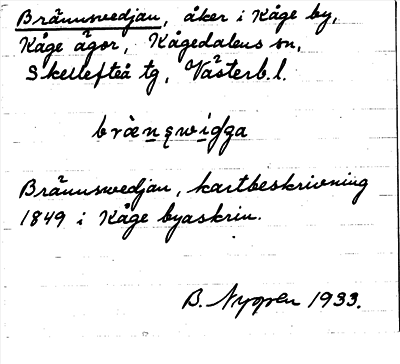 Brännsvedjan, åker i Kåge by,
Kåge ägor, Kågedalens sn,
Skellefteå tg, Västerb. l.
Brännsvedjan, kartbeskrivning
1849 i Kåge byaskrin.
B. Nygren 1933.